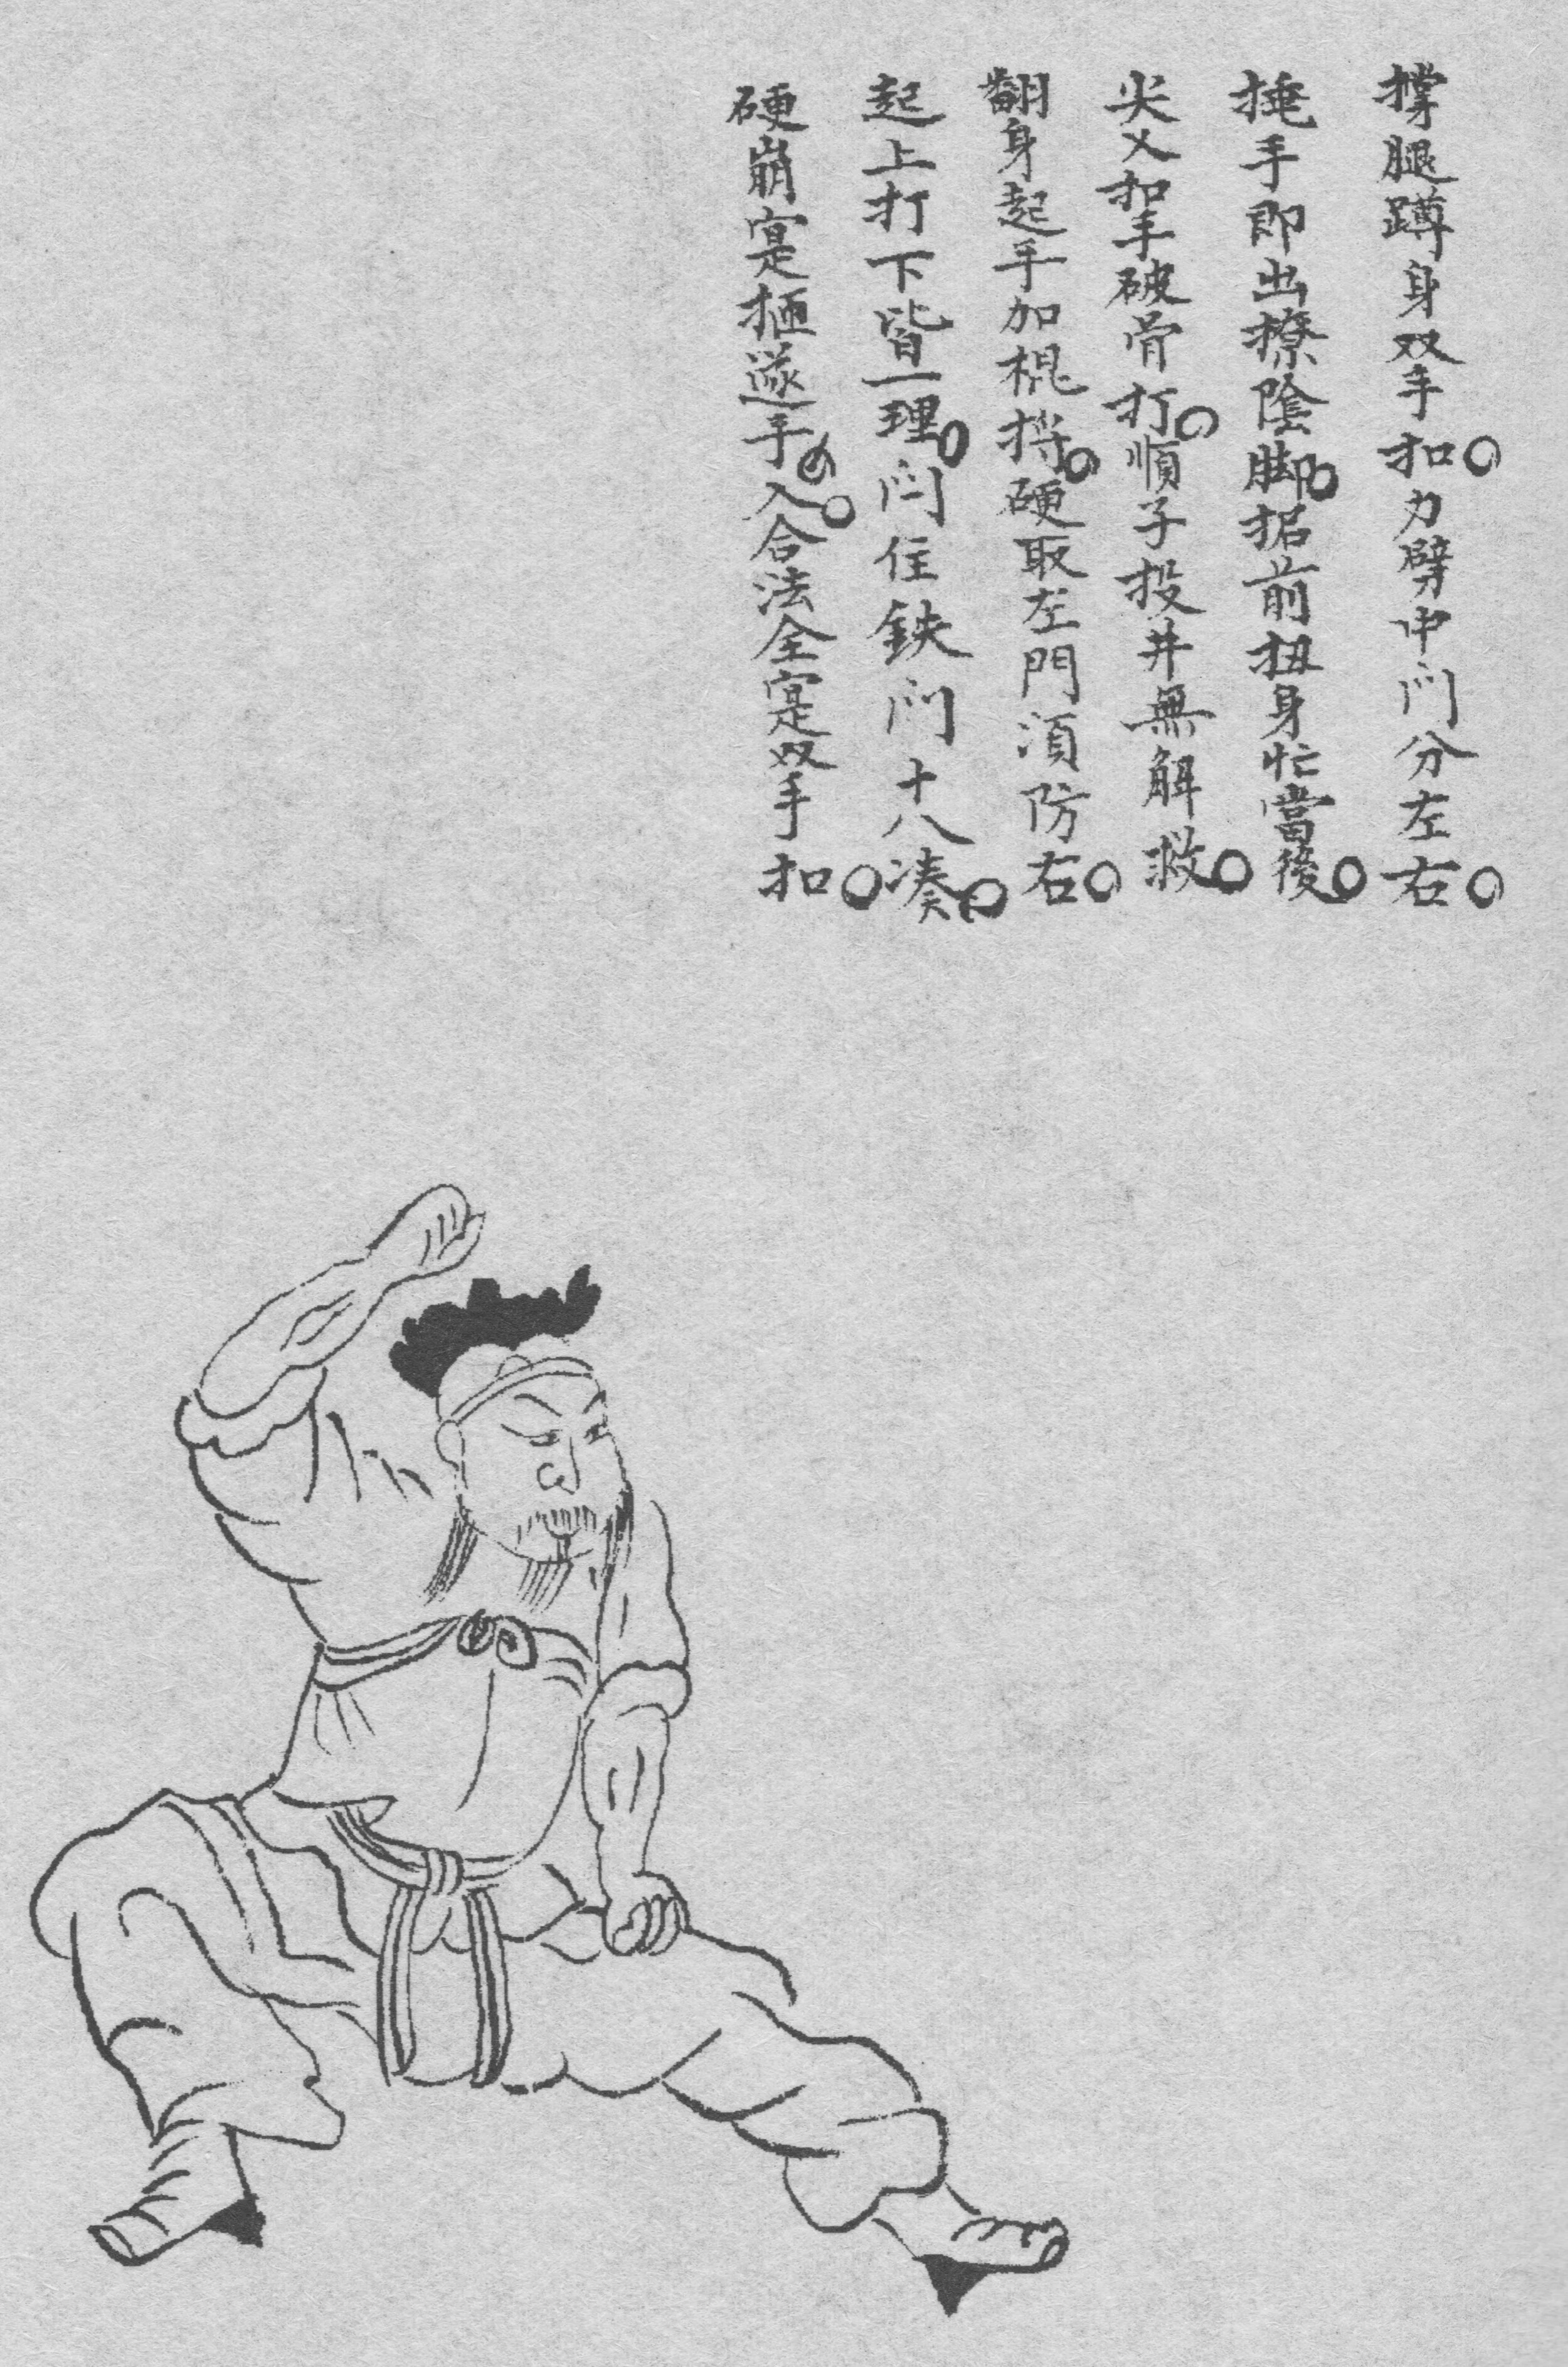 撑腿蹲身双手扣。力劈中门分左右。
捶手即出撩陰脚。据前扭身忙當後。
尖义扣手破骨打。順子投井無解救。
翻身起手加棍捋。硬取左門須防右。
起上打下皆一理。闩住鉄门十八凑。
硬崩寔搄遂手。入合法全寔双手扣。